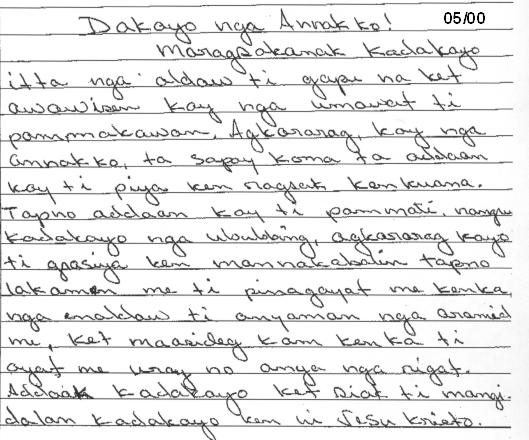 Dakayo nga Annakko!
05/00
Maragsakanak Kadakayo
itta nga aldaw ti gapu na ket
awawisen kay nga umawat ti
pammakawan, Agkararag, kay nga
annakko, ta sapay koma ta addaan
kay ti piya ken ragsak kenkuana.
Tapno addaan kay ti pammati,
Kadakayo nga ubbing, agkararag kayo
ti grasiya ken mannakabalin tapno
lakamen me ti pinagayat me kenka
nga inaldaw ti anyaman nga aramid
me, ket maasideg kam kenka ti
ayat me uray no anya nga rigat.
Addaak Kadakayo ket siak ti mangi-
dalan kadakayo ken ni Jesu Kristo.